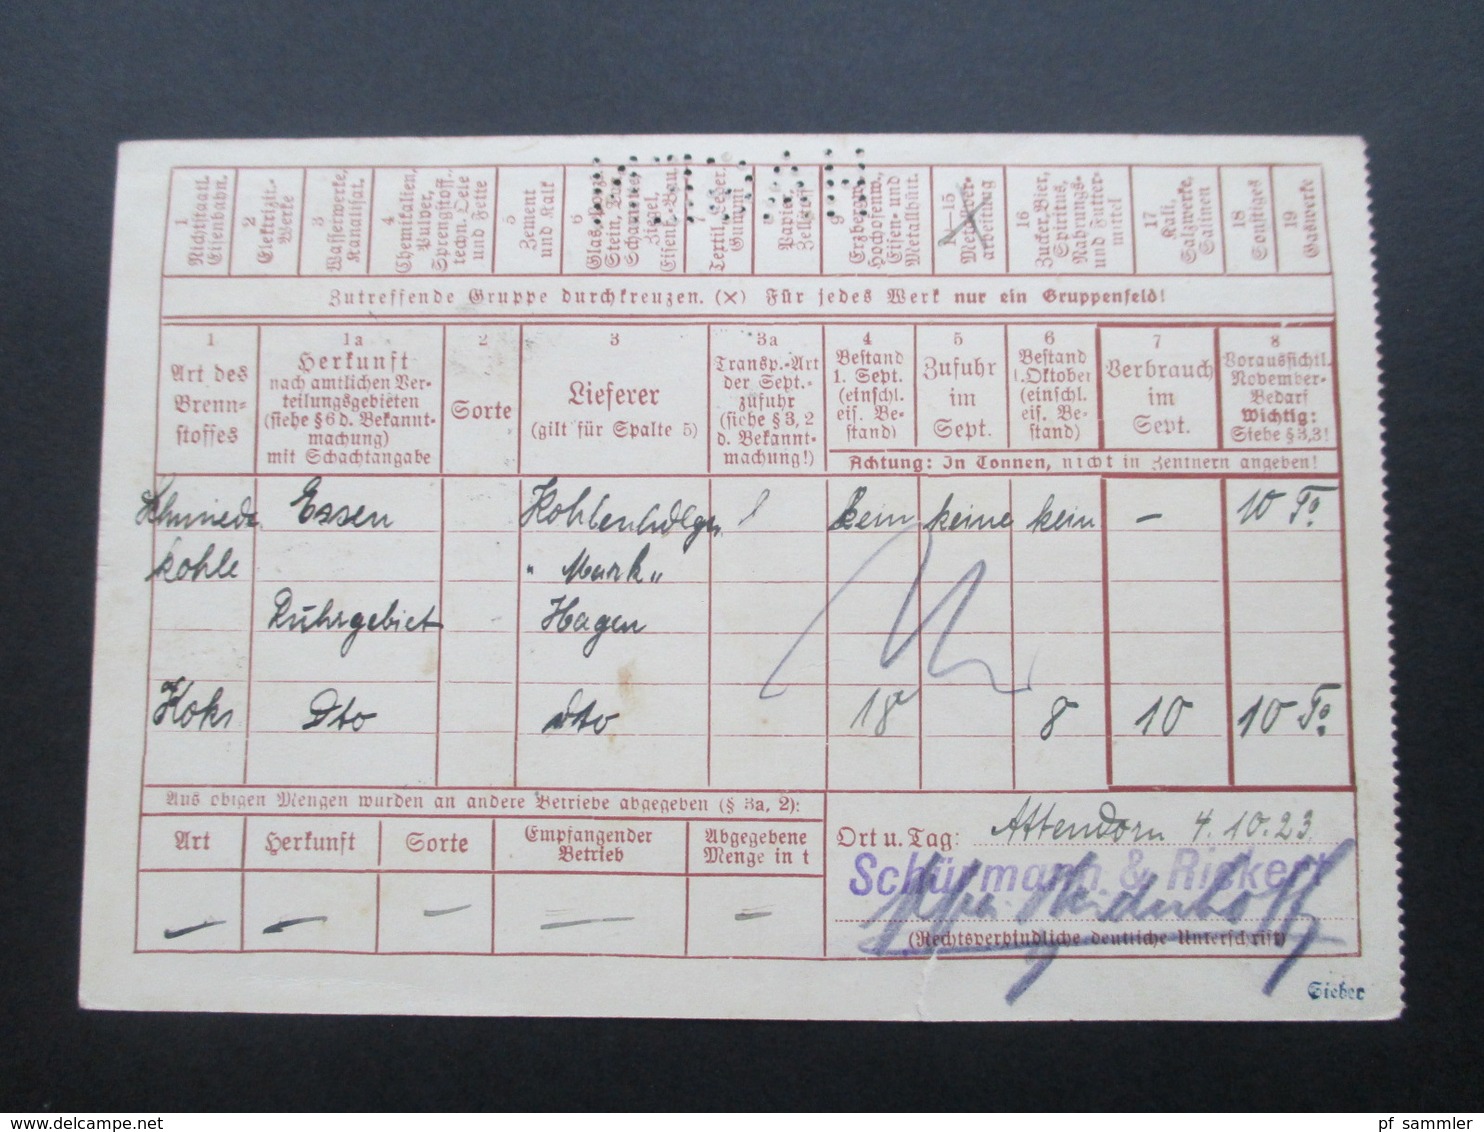 1 Nichtstaatl. Eisenbahn.
2 Elektrizit.-Werke
3 Wasserwerke, Kanalisat.
4 Chemikalien, Pulver, Sprengstoff., techn. Oele und Fette
5 Zement und Kalk
6
Ziegel,
Textil, Leder, Gummi
Papier
9 Erzbergw., Hochofenw., Eisen- und Metallhütt.
Metallver-arbeitung
16 Zucker, Bier, Spiritus, Nahrungs- und Futter-mittel
17 Kali, Salzwerke, Salinen
18 Sonstiges
19 Gaswerke
Zutreffende Gruppe durchkreuzen. (×) Für jedes Werk nur ein Gruppenfeld!
1 Art des Brenn-stoffes
1a Herkunft nach amtlichen Ver-teilungsgebieten (siehe § 6 d. Bekannt-machung) mit Schachtangabe
2 Sorte
3 Lieferer (gilt für Spalte 5)
3a Transp.-Art der Sept.-zufuhr (siehe § 3, 2 d. Bekannt-machung!)
4 Bestand 1. Sept. (einschl. eis. Be-stand)
5 Zufuhr im Sept.
6 Bestand 1. Oktober (einschl. eis. Be-stand)
7 Verbrauch im Sept.
8 Voraussichtl. November-Bedarf Wichtig: Siehe § 3,3!
Achtung: In Tonnen, nicht in Zentnern angeben!
Schmiede Essen Kohlenhdlgn kein keine kein – 10 To
kohle " Mark "
Ruhrgebiet Hagen
Koks dto dto 18 8 10 10 To
Aus obigen Mengen wurden an andere Betriebe abgegeben (§ 3a, 2):
Art Herkunft Sorte Empfangender Betrieb Abgegebene Menge in t
Ort u. Tag: Attendorn 4.10.23.
Schürmann & Rickert
(Rechtsverbindliche deutliche Unterschrift)
Sieber
pf_sammler